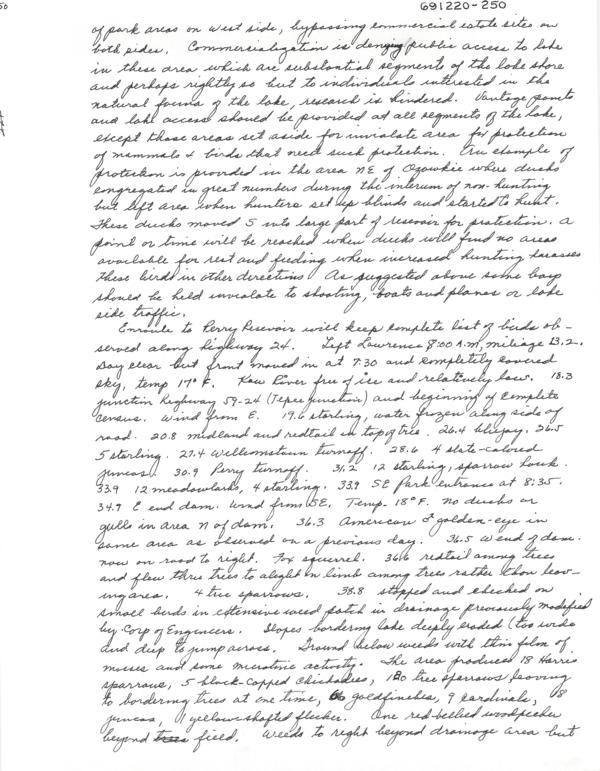 691220-250
of park areas on west side, bypassing commercial estate sites on
both sides. Commercialization is denying public access to lake
in these area which are substantial segments of the lake shore
and perhaps rightly so but to individuals interested in the
natural fauna of the lake, research is hindered. Vantage points
and lake access should be provided at all segments of the lake,
except those areas set aside for inviolate area for protection
of mammals & birds that need such protection. One example of
protection is provided in the area NE of Ozawkie where ducks
congregated in great numbers during the interum of non-hunting
but left area when hunters set up blinds and started to hunt.
These ducks moved S into large part of resevoir for protection. A
point or time will be reached when ducks will find no areas
available for rest and feeding when increased hunting harasses
these birds in other directions As suggested above some bays
should be held inviolate to shooting, boats and planes or lake
side traffic.
Enroute to Perry Resevoir will keep complete list of birds ob-
served along highway 24. Left Lawrence 8:00 A.M, mileage 13.2.
Day clear but front moved in at 7:30 and completely covered
sky, temp 17° F. Kaw River free of ice and relatively low. 18.3
junction highway 59-24 (Tepee junction) and beginning of complete
census. Wind from E. 19.6 starling, water frozen along side of
road. 20.8 midland and redtail in top of tree. 26.4 bluejay. 26.5
5 starling. 27.4 Williamstown turnoff. 28.6 4 slate-colored
juncos. 30.9 Perry turnoff. 31.2 12 starling, sparrow hawk.
33.9 12 meadowlarks, 4 starling. 33.9 SE Park entrance at 8:35.
34.9 E end dam. Wind from SE. Temp. 18° F. No ducks or
gulls in area N of dam. 36.3 American goldeneye in
same area as observed on a previous day. 36.5 W end of dam.
now on road to right. Fox squirrel. 36.6 redtail among trees
and flew thru trees to alight on limb among trees rather than leav-
ing area. 4 tree sparrows. 38.8 stopped and checked on
small birds in extensive weed patch in drainage previously modified
by Corp of Engineers. Slopes bordering lake deeply eroded (too wide
and deep to jump across. Ground below weeds with thin film of
mosses and some microtine activity. The area produced 18 Harris
sparrows, 5 black-capped chickadees, 120 tree sparrows leaving
to bordering trees at one time, 6 goldfinches, 9 cardinals, 18
juncos, 1 yellow-shafted flicker. One red-bellied woodpecker
beyond trees field. Weeds to right beyond drainage area but